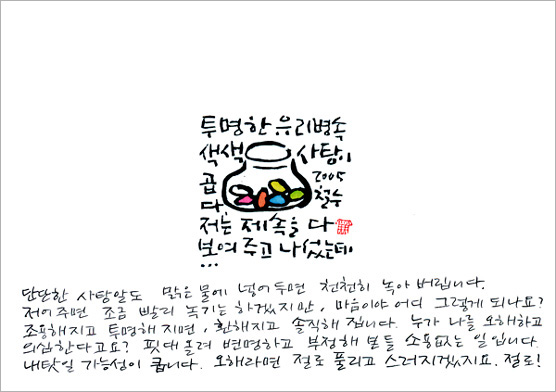 투명한 유리병속
색색 사탕이
곱
다
2005
철수
저는 제 속을 다
보여 주고 나 섰는데
...
단단한 사탕알도 맑은 물에 넣어두면 천천히 녹아 버립니다.
저어주면 조금 빨리 녹기는 하겠지만, 마음이야 어디 그렇게 되나요?
조용해지고 투명해 지면, 환해지고 솔직해 집니다. 누가 나를 오해하고
의심한다고요? 핏대 올려 변명하고 부정해 본들 소용없는 일 입니다.
내 탓일 가능성이 큽니다. 오해라면 절로 풀리고 스러지겠지요. 절로!